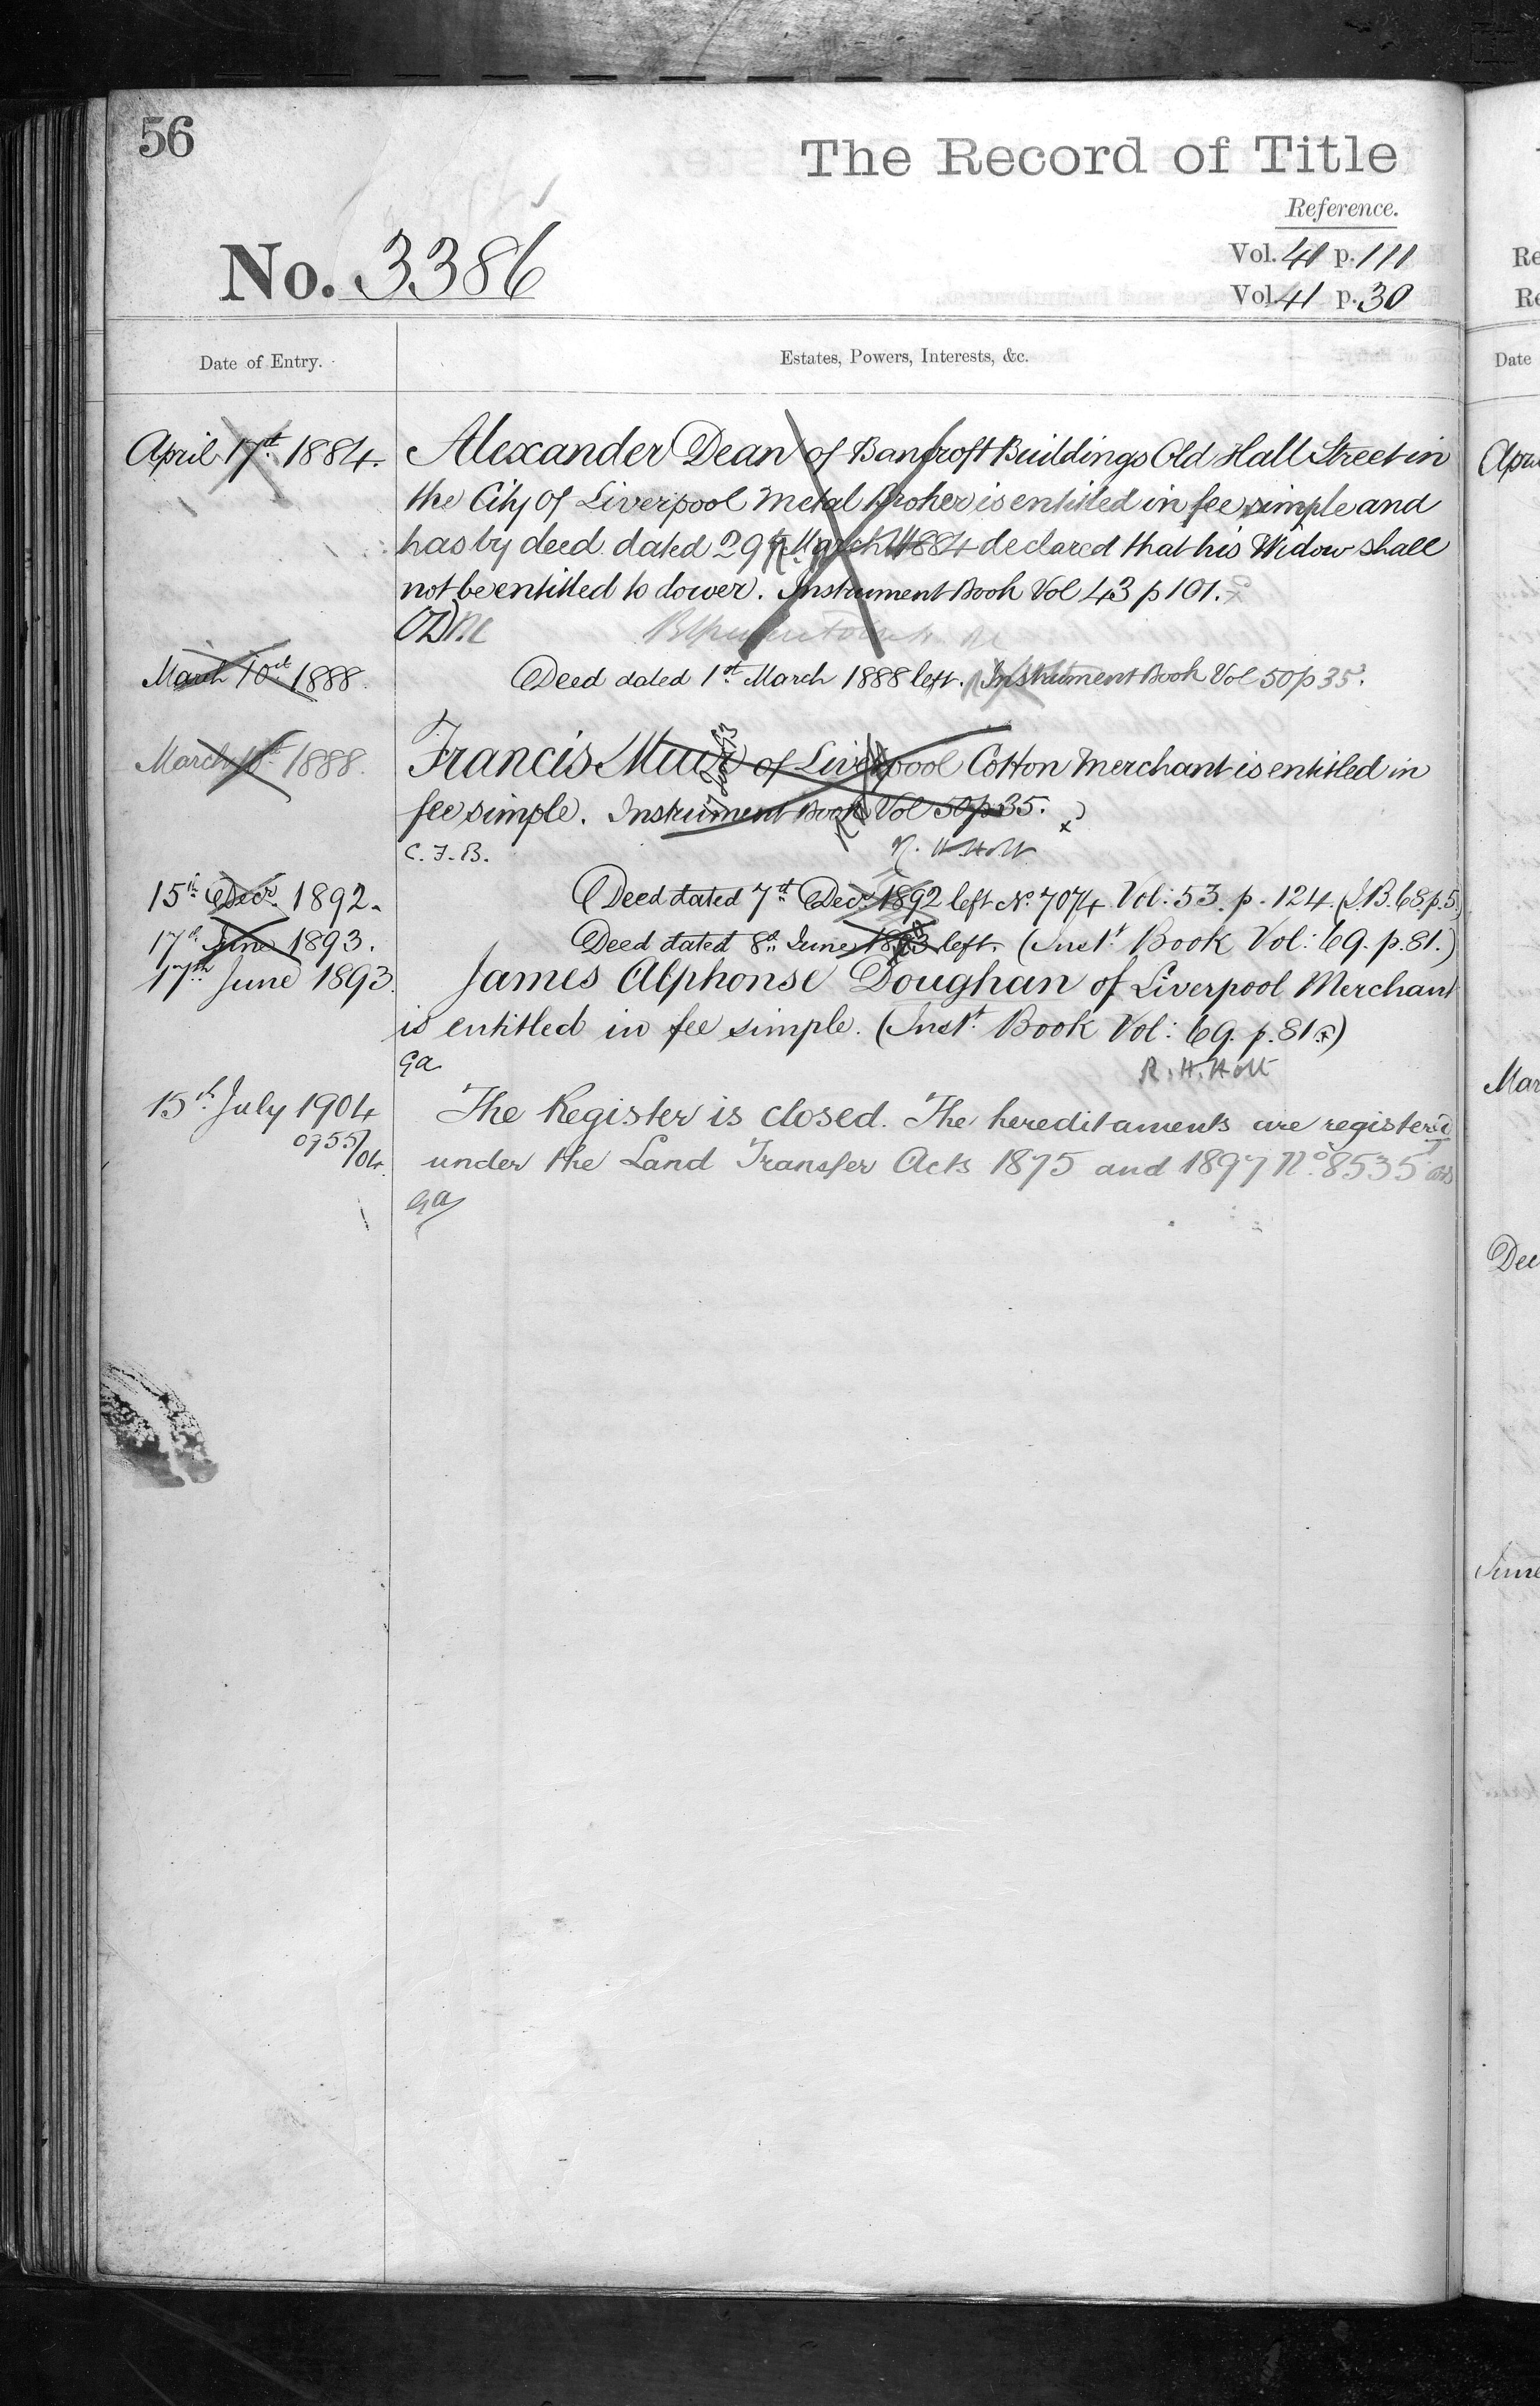 56
The Record of Title
Reference.
No. 3386
Vol. 41 p. 111
Vol. 41 p. 30
Date of Entry.
Estates, Powers, Interests, &c.
April 17th 1884. Alexander Dean of Bancroft Buildings Old Hall Street in
the City of Liverpool Metal Broker is entitled in fee simple and
has by deed dated 29th March 1884 declared that his Widow shall
not be entitled to dower. Instrument Book Vol 43 p 101.
March 10th 1888. Deed dated 1st March 1888 left. Instrument Book Vol 50 p 35.
March 1888. Francis Muir of Liverpool Cotton Merchant is entitled in
fee simple. Instrument Book Vol 50 p 35.
C. F. B. R. H. Holt
15th Decr. 1892. Deed dated 7th Decr. 1892 left No. 7074 Vol: 53. p. 124 (I.B. 68. p. 5
17th June 1893. Deed dated 8th June 1893 left. (Instt. Book Vol: 69. p. 81.)
17th June 1893. James Alphonse Doughan of Liverpool Merchant
is entitled in fee simple. (Instt. Book Vol: 69. p. 81.)
Ga R. H. Holt
15th July 1904 The Register is closed. The hereditaments are registered
0955/04. under the Land Transfer Acts 1875 and 1897 No. 8535
Ga
Re
Re
Date